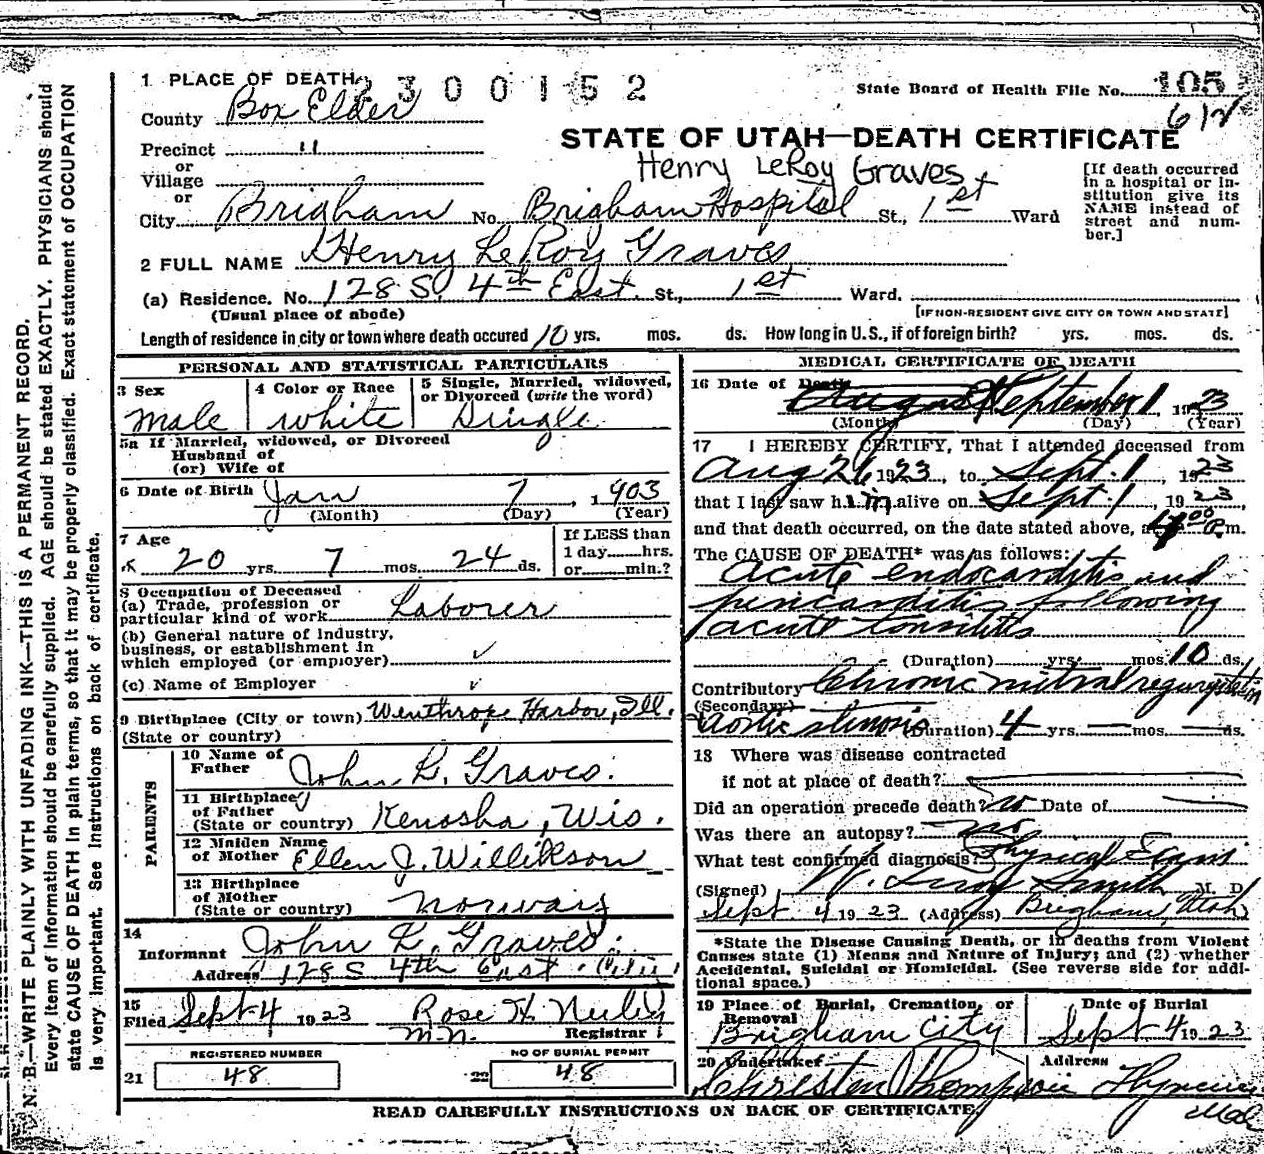 1 PLACE OF DEATH
2300152
State Board of Health File No. 105
612
County Box Elder
STATE OF UTAH—DEATH CERTIFICATE
Precinct "
or
Village
or
Henry LeRoy Graves
[If death occurred in a hospital or institution give its NAME instead of street and number.]
City Brigham No. Brigham Hospital St., 1st Ward
2 FULL NAME Henry LeRoy Graves
(a) Residence. No. 128 S. 4th East St., 1st Ward.
(Usual place of abode)
[IF NON-RESIDENT GIVE CITY OR TOWN AND STATE]
Length of residence in city or town where death occured 10 yrs. mos. ds. How long in U.S., if of foreign birth? yrs. mos. ds.
PERSONAL AND STATISTICAL PARTICULARS
3 Sex
male
4 Color or Race
white
5 Single, Married, widowed, or Divorced (write the word)
Single
5a If Married, widowed, or Divorced
Husband of
(or) Wife of
6 Date of Birth Jan 7, 1903
(Month) (Day) (Year)
7 Age
20 yrs. 7 mos. 24 ds.
If LESS than
1 day......hrs.
or......min.?
8 Occupation of Deceased
(a) Trade, profession or
particular kind of work Laborer
(b) General nature of Industry,
business, or establishment in
which employed (or employer) ✓
(c) Name of Employer ✓
9 Birthplace (City or town) Wenthrope Harbor, Ill.
(State or country)
PARENTS
10 Name of
Father John L. Graves.
11 Birthplace
of Father
(State or country) Kenosha, Wis.
12 Maiden Name
of Mother Ellen J. Willikson
13 Birthplace
of Mother
(State or country) Norway
14
Informant John L. Graves.
Address 128 S 4th East. City
15
Filed Sept 4 1923 Rose H
M.N. Registrar
REGISTERED NUMBER
21 48
NO OF BURIAL PERMIT
22 48
MEDICAL CERTIFICATE OF DEATH
16 Date of Death
August September 1, 1923
(Month) (Day) (Year)
17 I HEREBY CERTIFY, That I attended deceased from
Aug 26 1923, to Sept. 1, 1923
that I last saw him alive on Sept 1, 1923,
and that death occurred, on the date stated above, at 4:00 P.m.
The CAUSE OF DEATH* was as follows:
acute endocarditis and
pericarditis following
acute tonsilitis
(Duration) yrs. mos. 10 ds.
Contributory Chronic mitral regurgitation
(Secondary)
Aortic stenosis (Duration) 4 yrs. — mos. — ds.
18 Where was disease contracted
if not at place of death?
Did an operation precede death? no Date of —
Was there an autopsy? no
What test confirmed diagnosis? Physical Exam
(Signed) W. Leroy Smith M. D.
Sept 4 1923 (Address) Brigham, Utah
*State the Disease Causing Death, or in deaths from Violent
Causes state (1) Means and Nature of Injury; and (2) whether
Accidental, Suicidal or Homicidal. (See reverse side for additional space.)
19 Place of Burial, Cremation, or
Removal
Brigham City
Date of Burial
Sept 4 1923
20 Undertaker
Christen Thompson
Address
READ CAREFULLY INSTRUCTIONS ON BACK OF CERTIFICATE
N. B.—WRITE PLAINLY WITH UNFADING INK—THIS IS A PERMANENT RECORD.
Every item of Information should be carefully supplied. AGE should be stated EXACTLY. PHYSICIANS should
state CAUSE OF DEATH in plain terms, so that it may be properly classified. Exact statement of OCCUPATION
is very important. See Instructions on back of certificate.